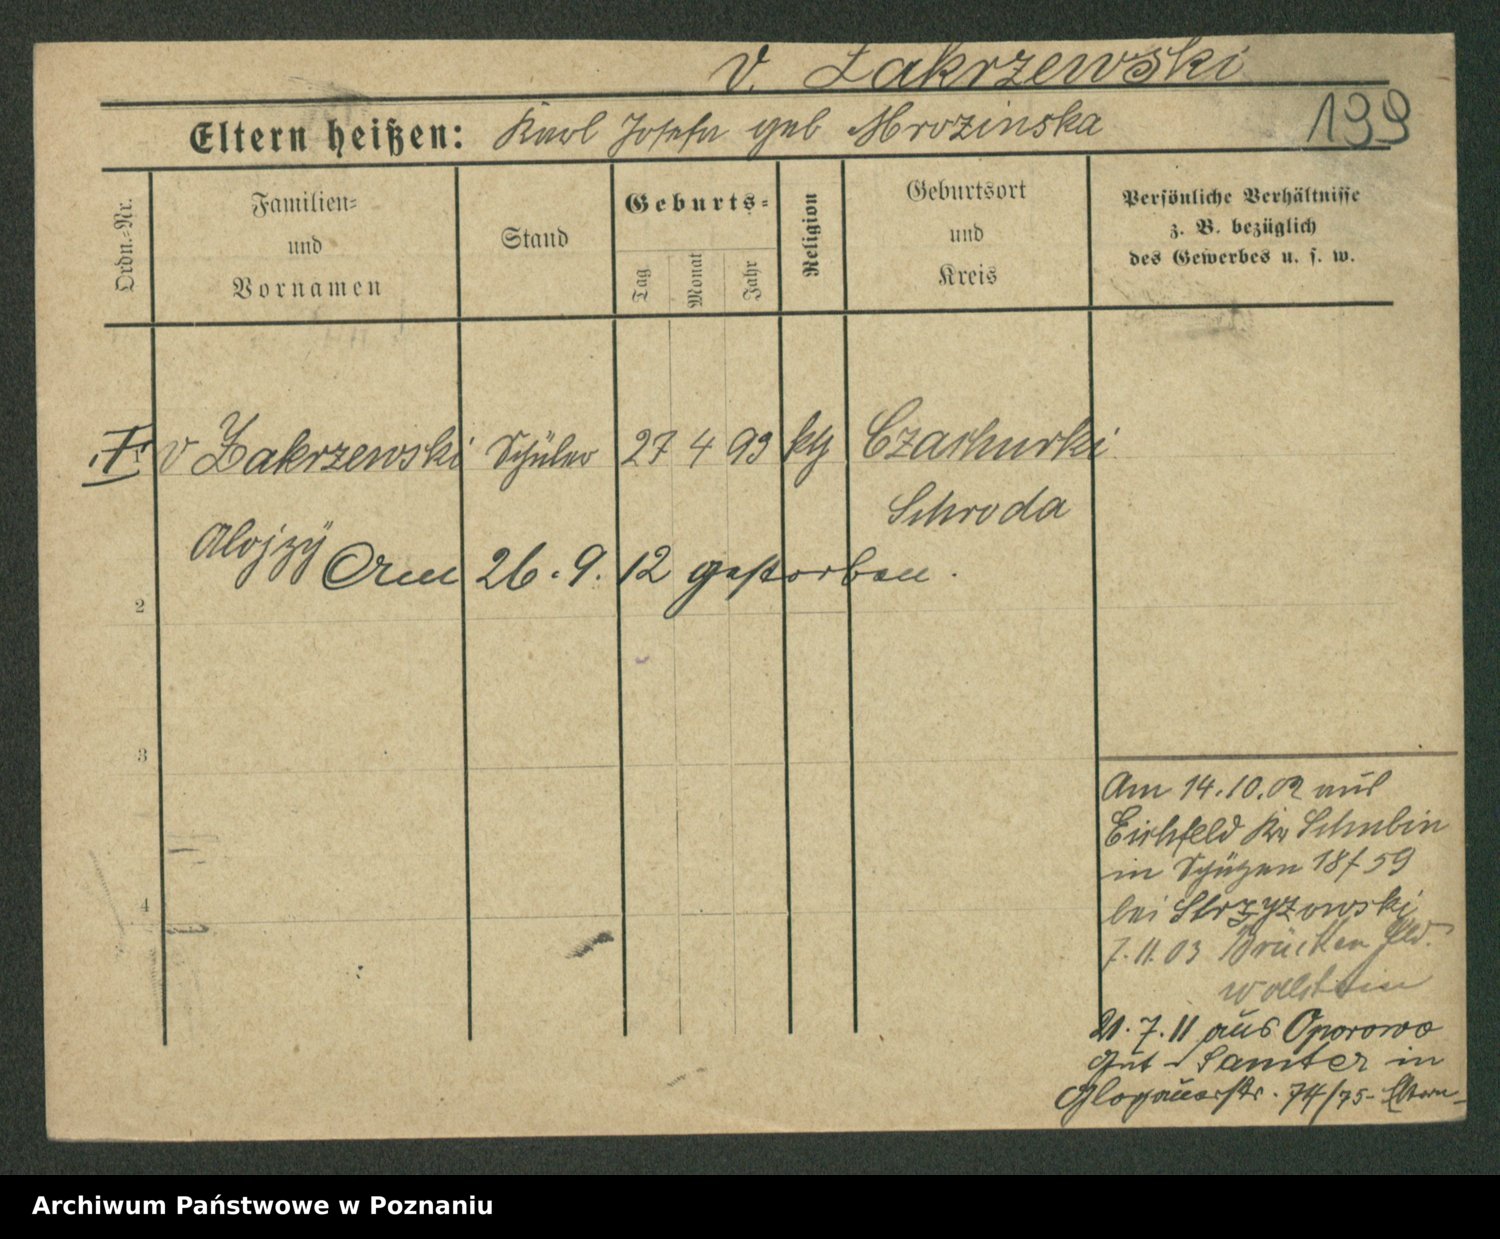 v. Zakrzewski
Eltern heißen: Karl Josefa geb Mrozinska
139
Ordn.-Nr.
Familien-
und
Vornamen
Stand
Geburts-
Tag
Monat
Jahr
Religion
Geburtsort
und
Kreis
Persönliche Verhältnisse
z. B. bezüglich
des Gewerbes u. s. w.
v Zakrzewski Schüler 27 4 93 kth Czachurki
Schroda
Alojzy
Am 26.9.12 gestorben.
2
3
4
Am 14.10.02 aus
Eichfeld Kr Schubin
in Schützen 18/59
bei Strzyzowski
7.11.03 Brücken
Wollstein
21.7.11 aus Oporowo
Gut - Samter in
Glogauerstr. 74/75- Eltern-
Archiwum Państwowe w Poznaniu